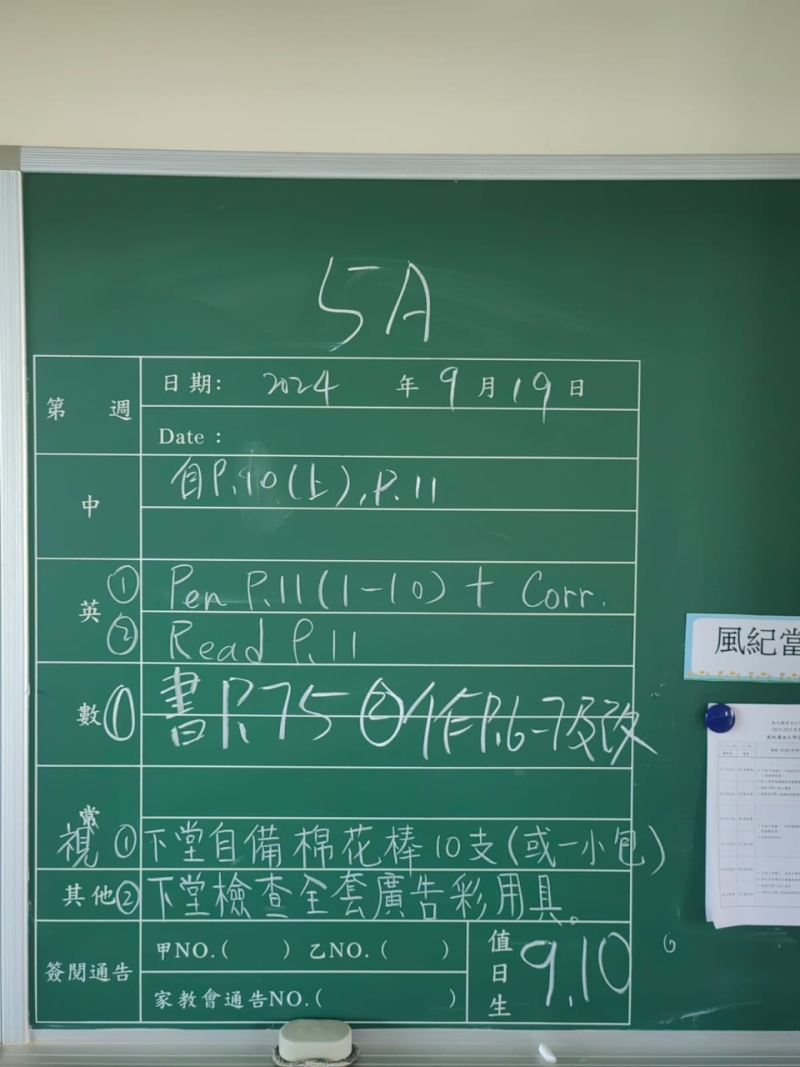 5A
第 週 日期: 2024 年 9 月 19 日
Date :
中 自P.10(上), P.11
英 ① Pen P.11(1-10) + Corr.
② Read P.11
數 ① 書P.75 ②作P.6-7及改
常
視 ① 下堂自備棉花棒10支(或一小包)
其他 ② 下堂檢查全套廣告彩用具。
簽閱通告 甲NO.( ) 乙NO.( )
家教會通告NO.( )
值日生 9,10
風紀當